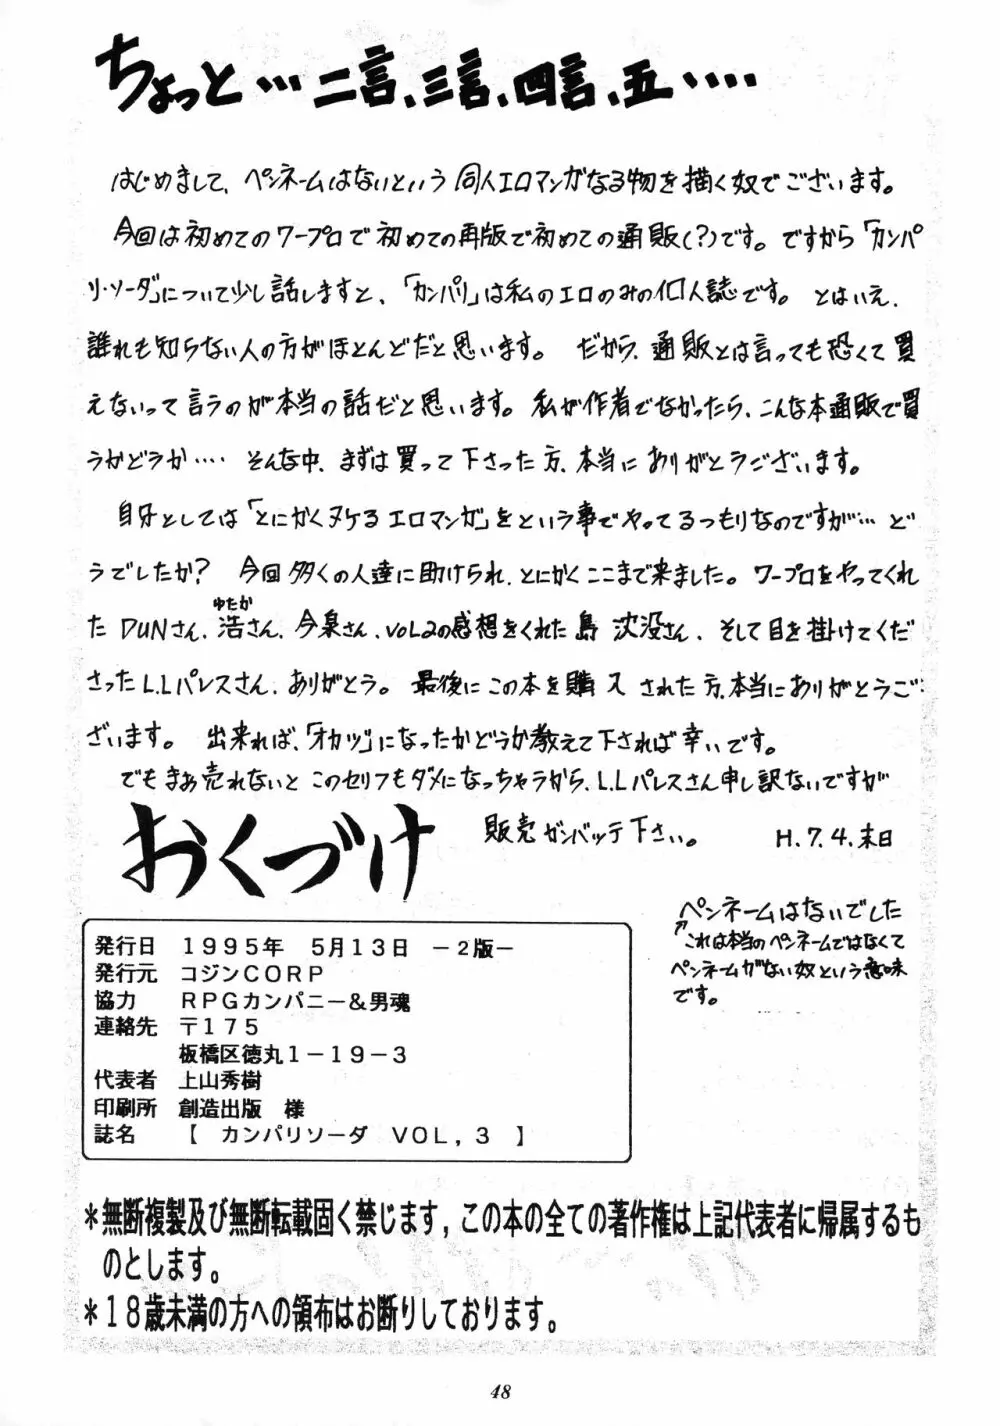 ちょっと…二言、三言、四言、五‥‥
はじめまして、ペンネームはないという同人エロマンガなる物を描く奴でございます。
今回は初めてのワープロで初めての再版で初めての通販(?)です。ですから「カンパ
リ・ソーダ」について少し話しますと、「カンパリ」は私のエロのみの個人誌です。とはいえ、
誰れも知らない人の方がほとんどだと思います。だから、通販とは言っても恐くて買
えないって言うのが本当の話だと思います。私が作者でなかったら、こんな本通販で買
うかどうか‥‥ そんな中、まずは買って下さった方、本当にありがとうございます。
自分としては「とにかくヌケるエロマンガ」をという事でやってるつもりなのですが… ど
うでしたか? 今回多くの人達に助けられ、とにかくここまで来ました。ワープロをやってくれ
ゆたか
たDUNさん、浩さん、今泉さん、VOL2の感想をくれた島 沈没さん、そして目を掛けてくだ
さったL.Lパレスさん、ありがとう。最後にこの本を購入された方、本当にありがとうご
ざいます。出来れば、「オカヅ」になったかどうか教えて下されば幸いです。
でもまぁ売れないとこのセリフもダメになっちゃうから、L.Lパレスさん申し訳ないですが
販売ガンバッテ下さい。 H.7.4.末日
おくづけ
ペンネームはないでした
これは本当のペンネームではなくて
ペンネームがない奴という意味
です。
発行日 1995年 5月13日 −2版−
発行元 コジンCORP
協力 RPGカンパニー&男魂
連絡先 〒175
板橋区徳丸1−19−3
代表者 上山秀樹
印刷所 創造出版 様
誌名 【 カンパリソーダ VOL,3 】
*無断複製及び無断転載固く禁じます,この本の全ての著作権は上記代表者に帰属するも
のとします。
*18歳未満の方への領布はお断りしております。
48